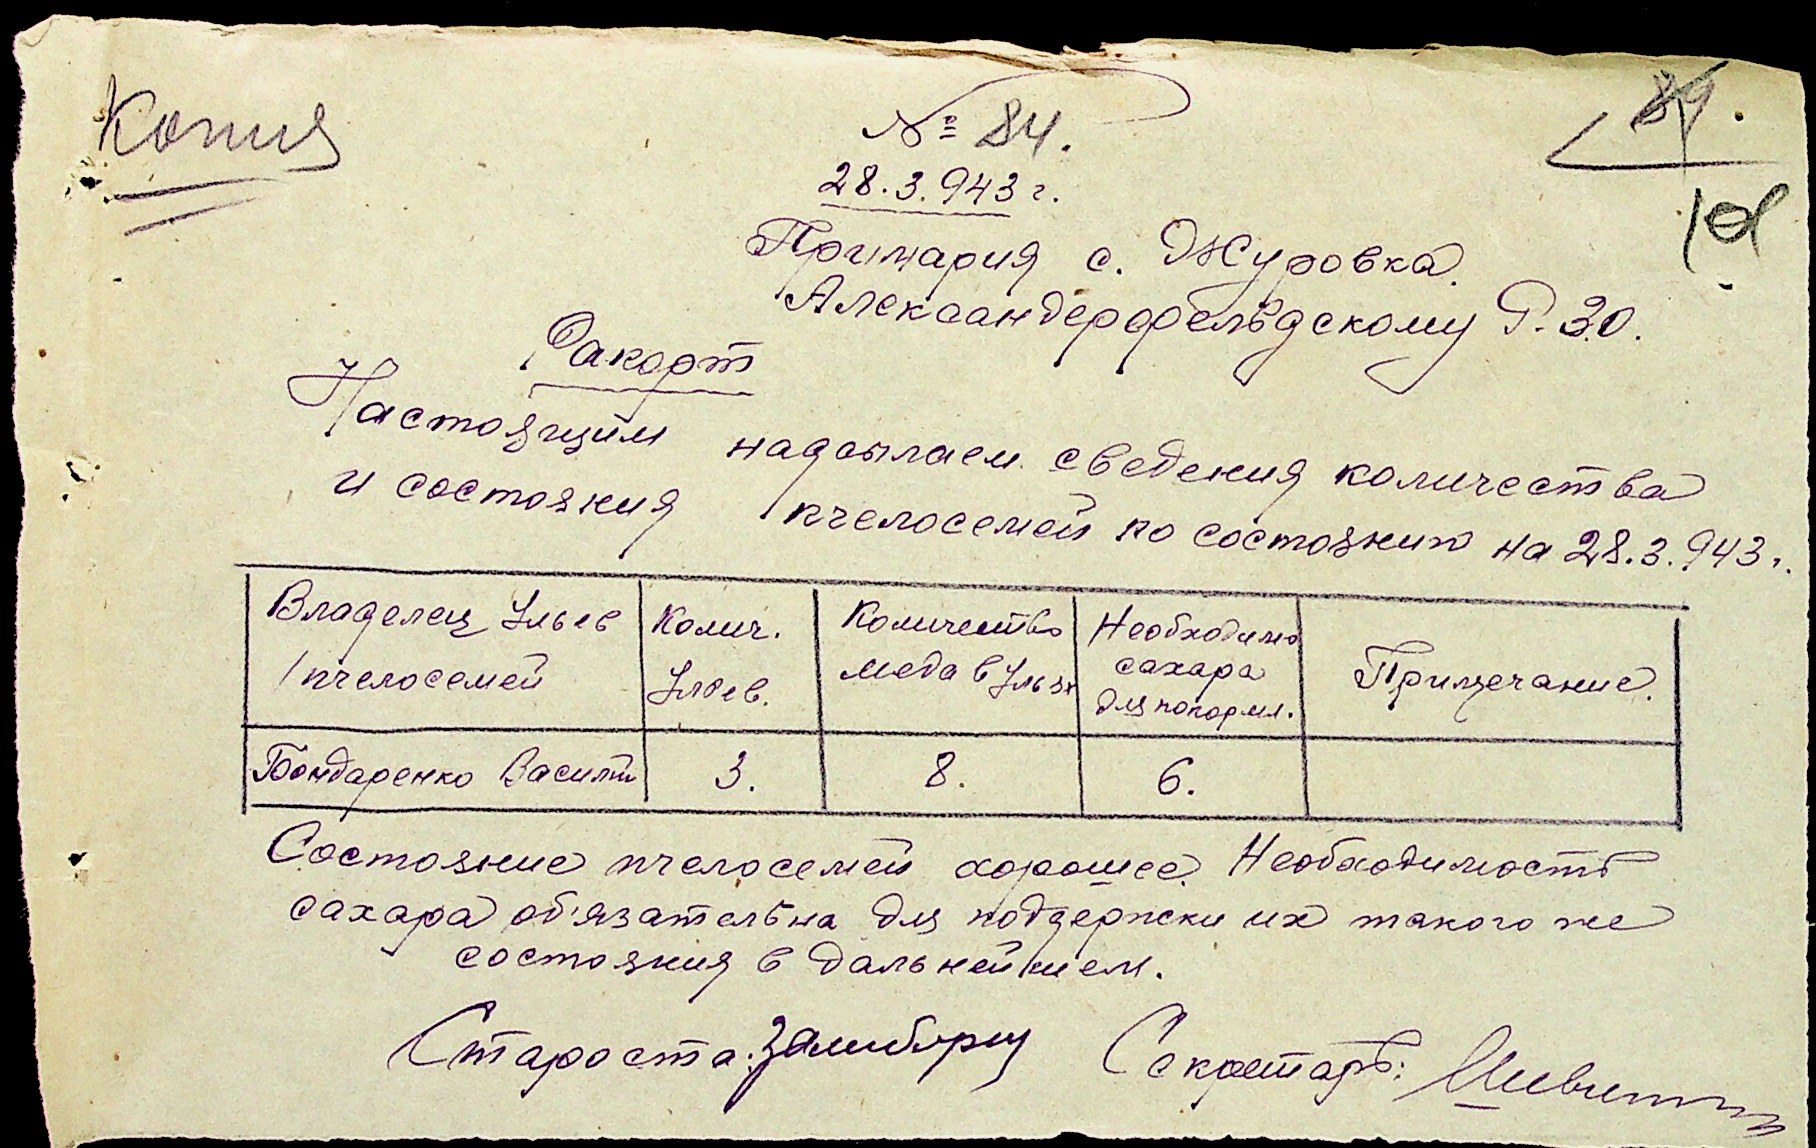 Копия
№ 84.
89.
28.3.943 г.
101
Примария с. Журовка
Александерфельдскому Р.З.О.
Рапорт
Настоящим надсылаем сведения количества
и состояния пчелосемей по состоянию на 28.3.943 г.
Владелец Ульев / пчелосемей
Колич. Ульев.
Количество меда в Ульях
Необходимо сахара для покормл.
Примечание.
Бондаренко Василий 3. 8. 6.
Состояние пчелосемей хорошее. Необходимость
сахара об'язательна для поддержки их такого же
состояния в дальнейшем.
Староста: Секретарь: